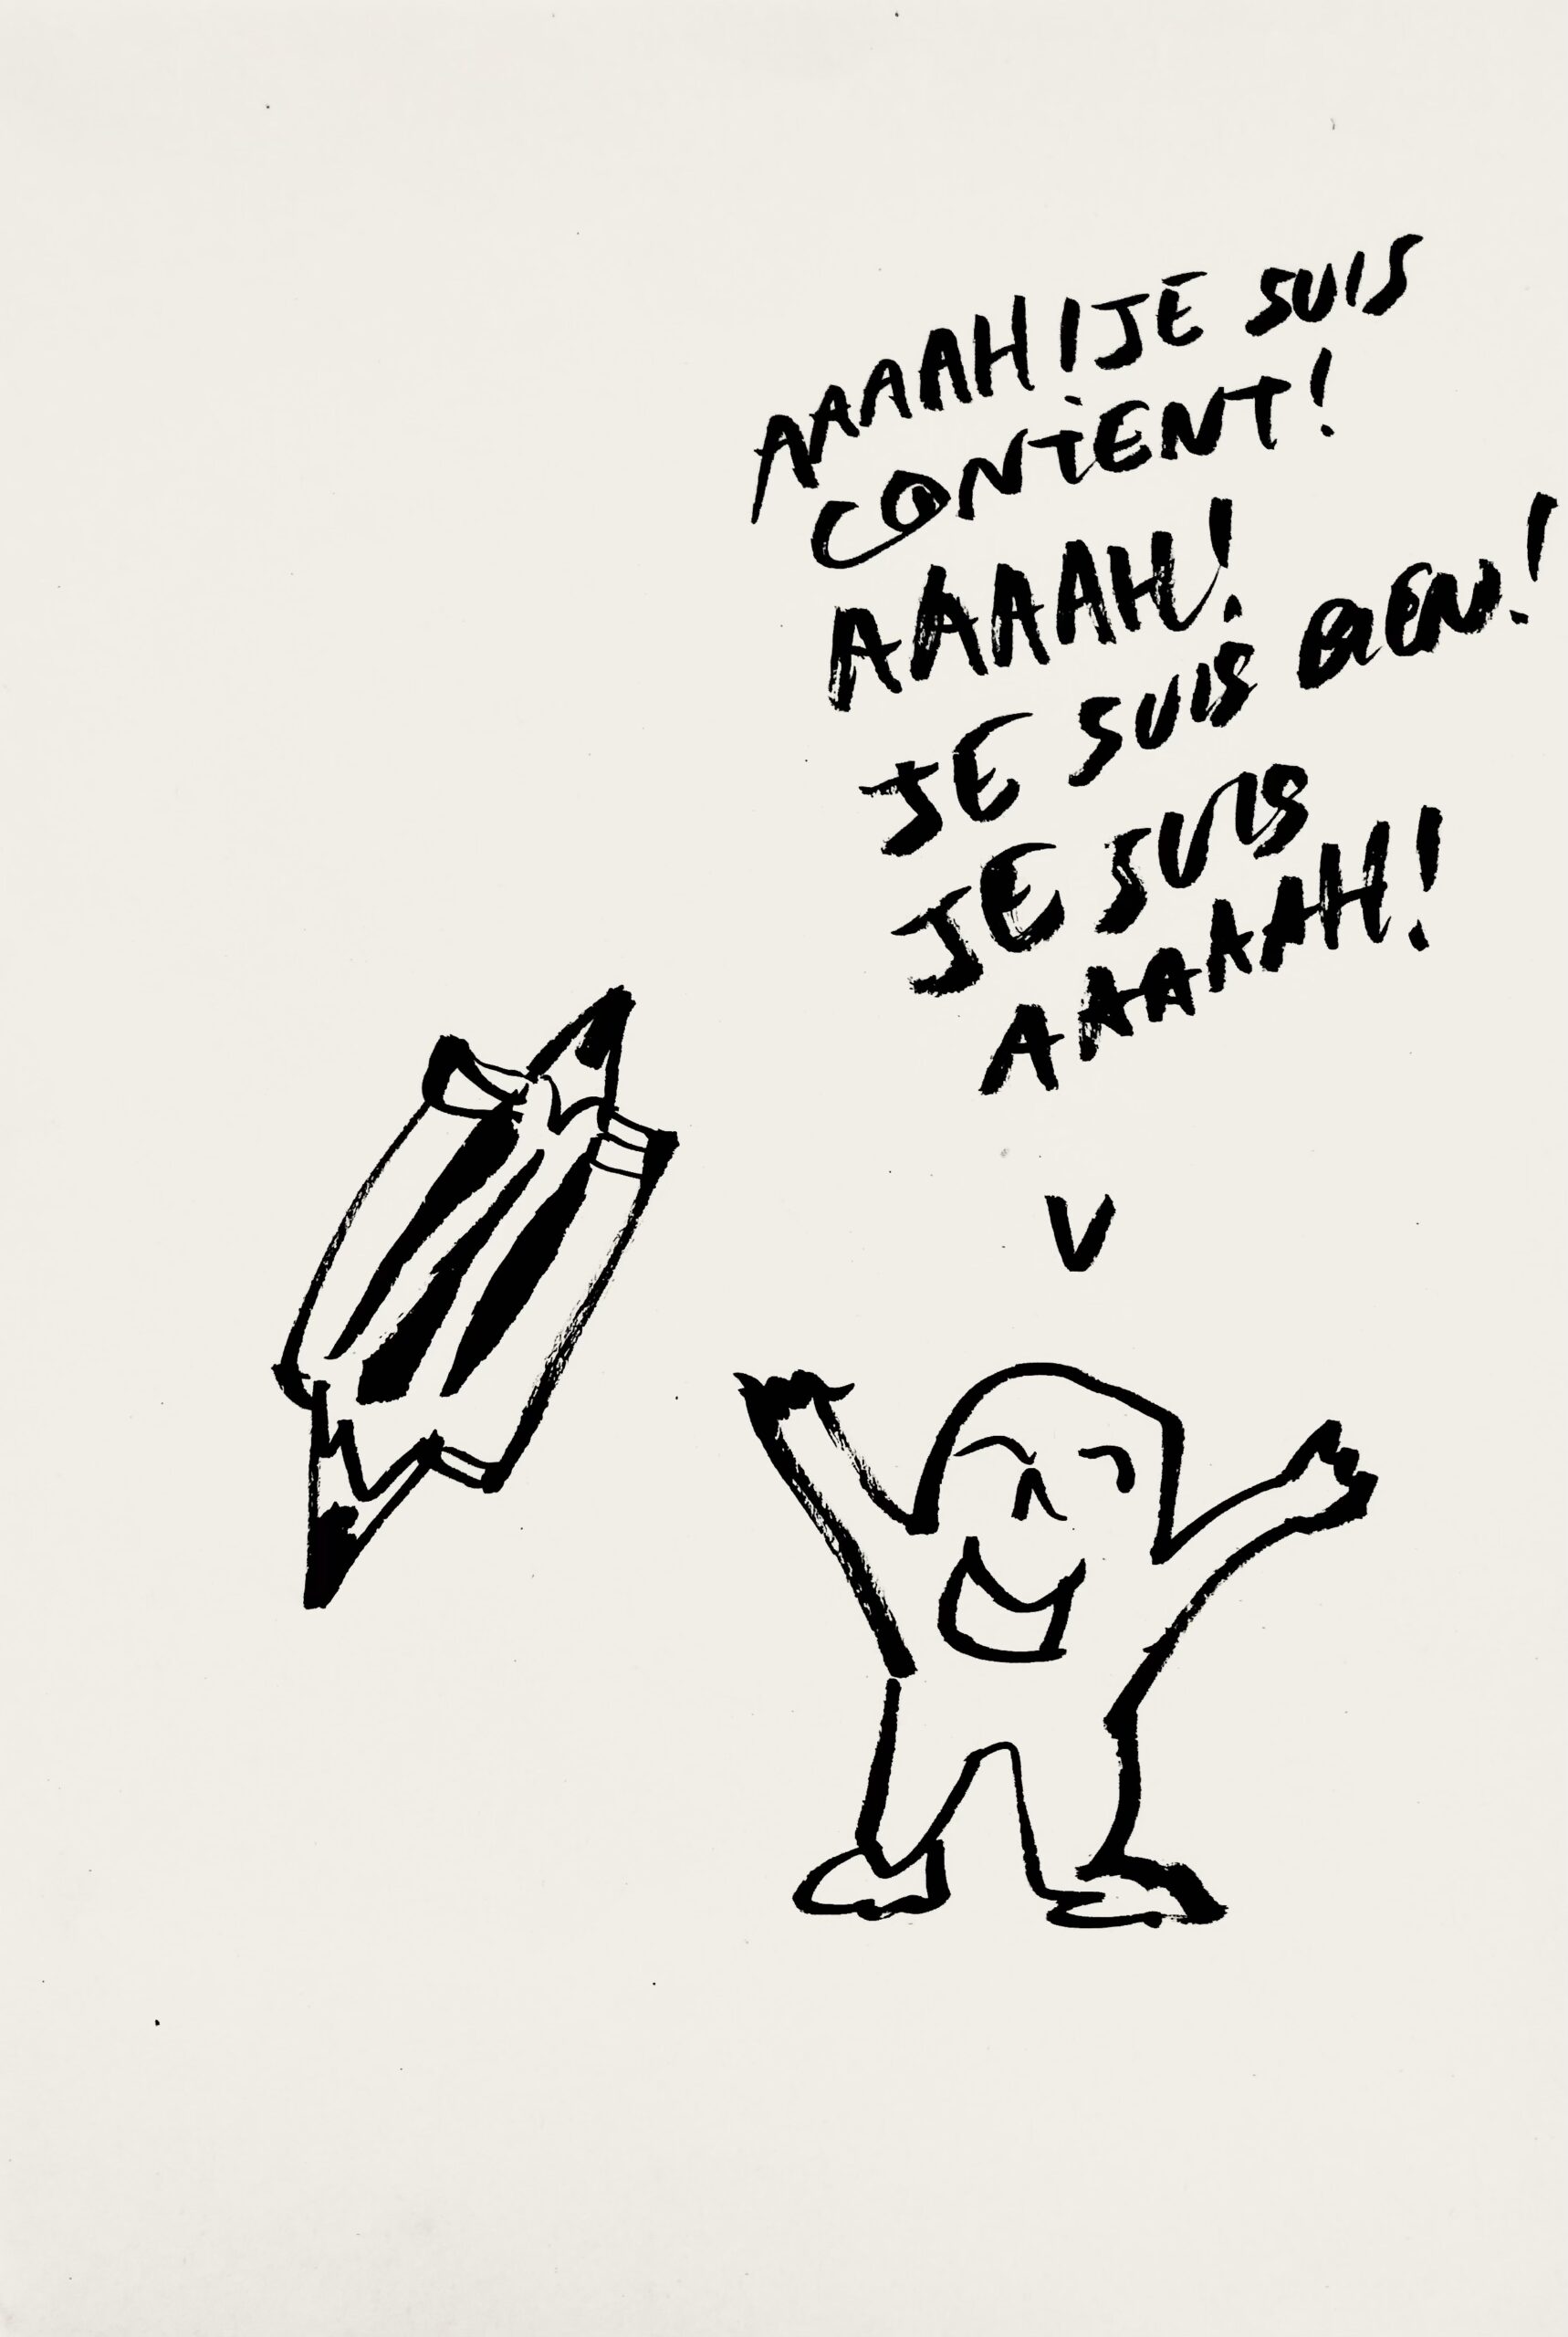 AAAAAH! JE SUIS
CONTENT!
AAAAAH!
JE SUIS BIEN!
JE SUIS
AAAAAAH!